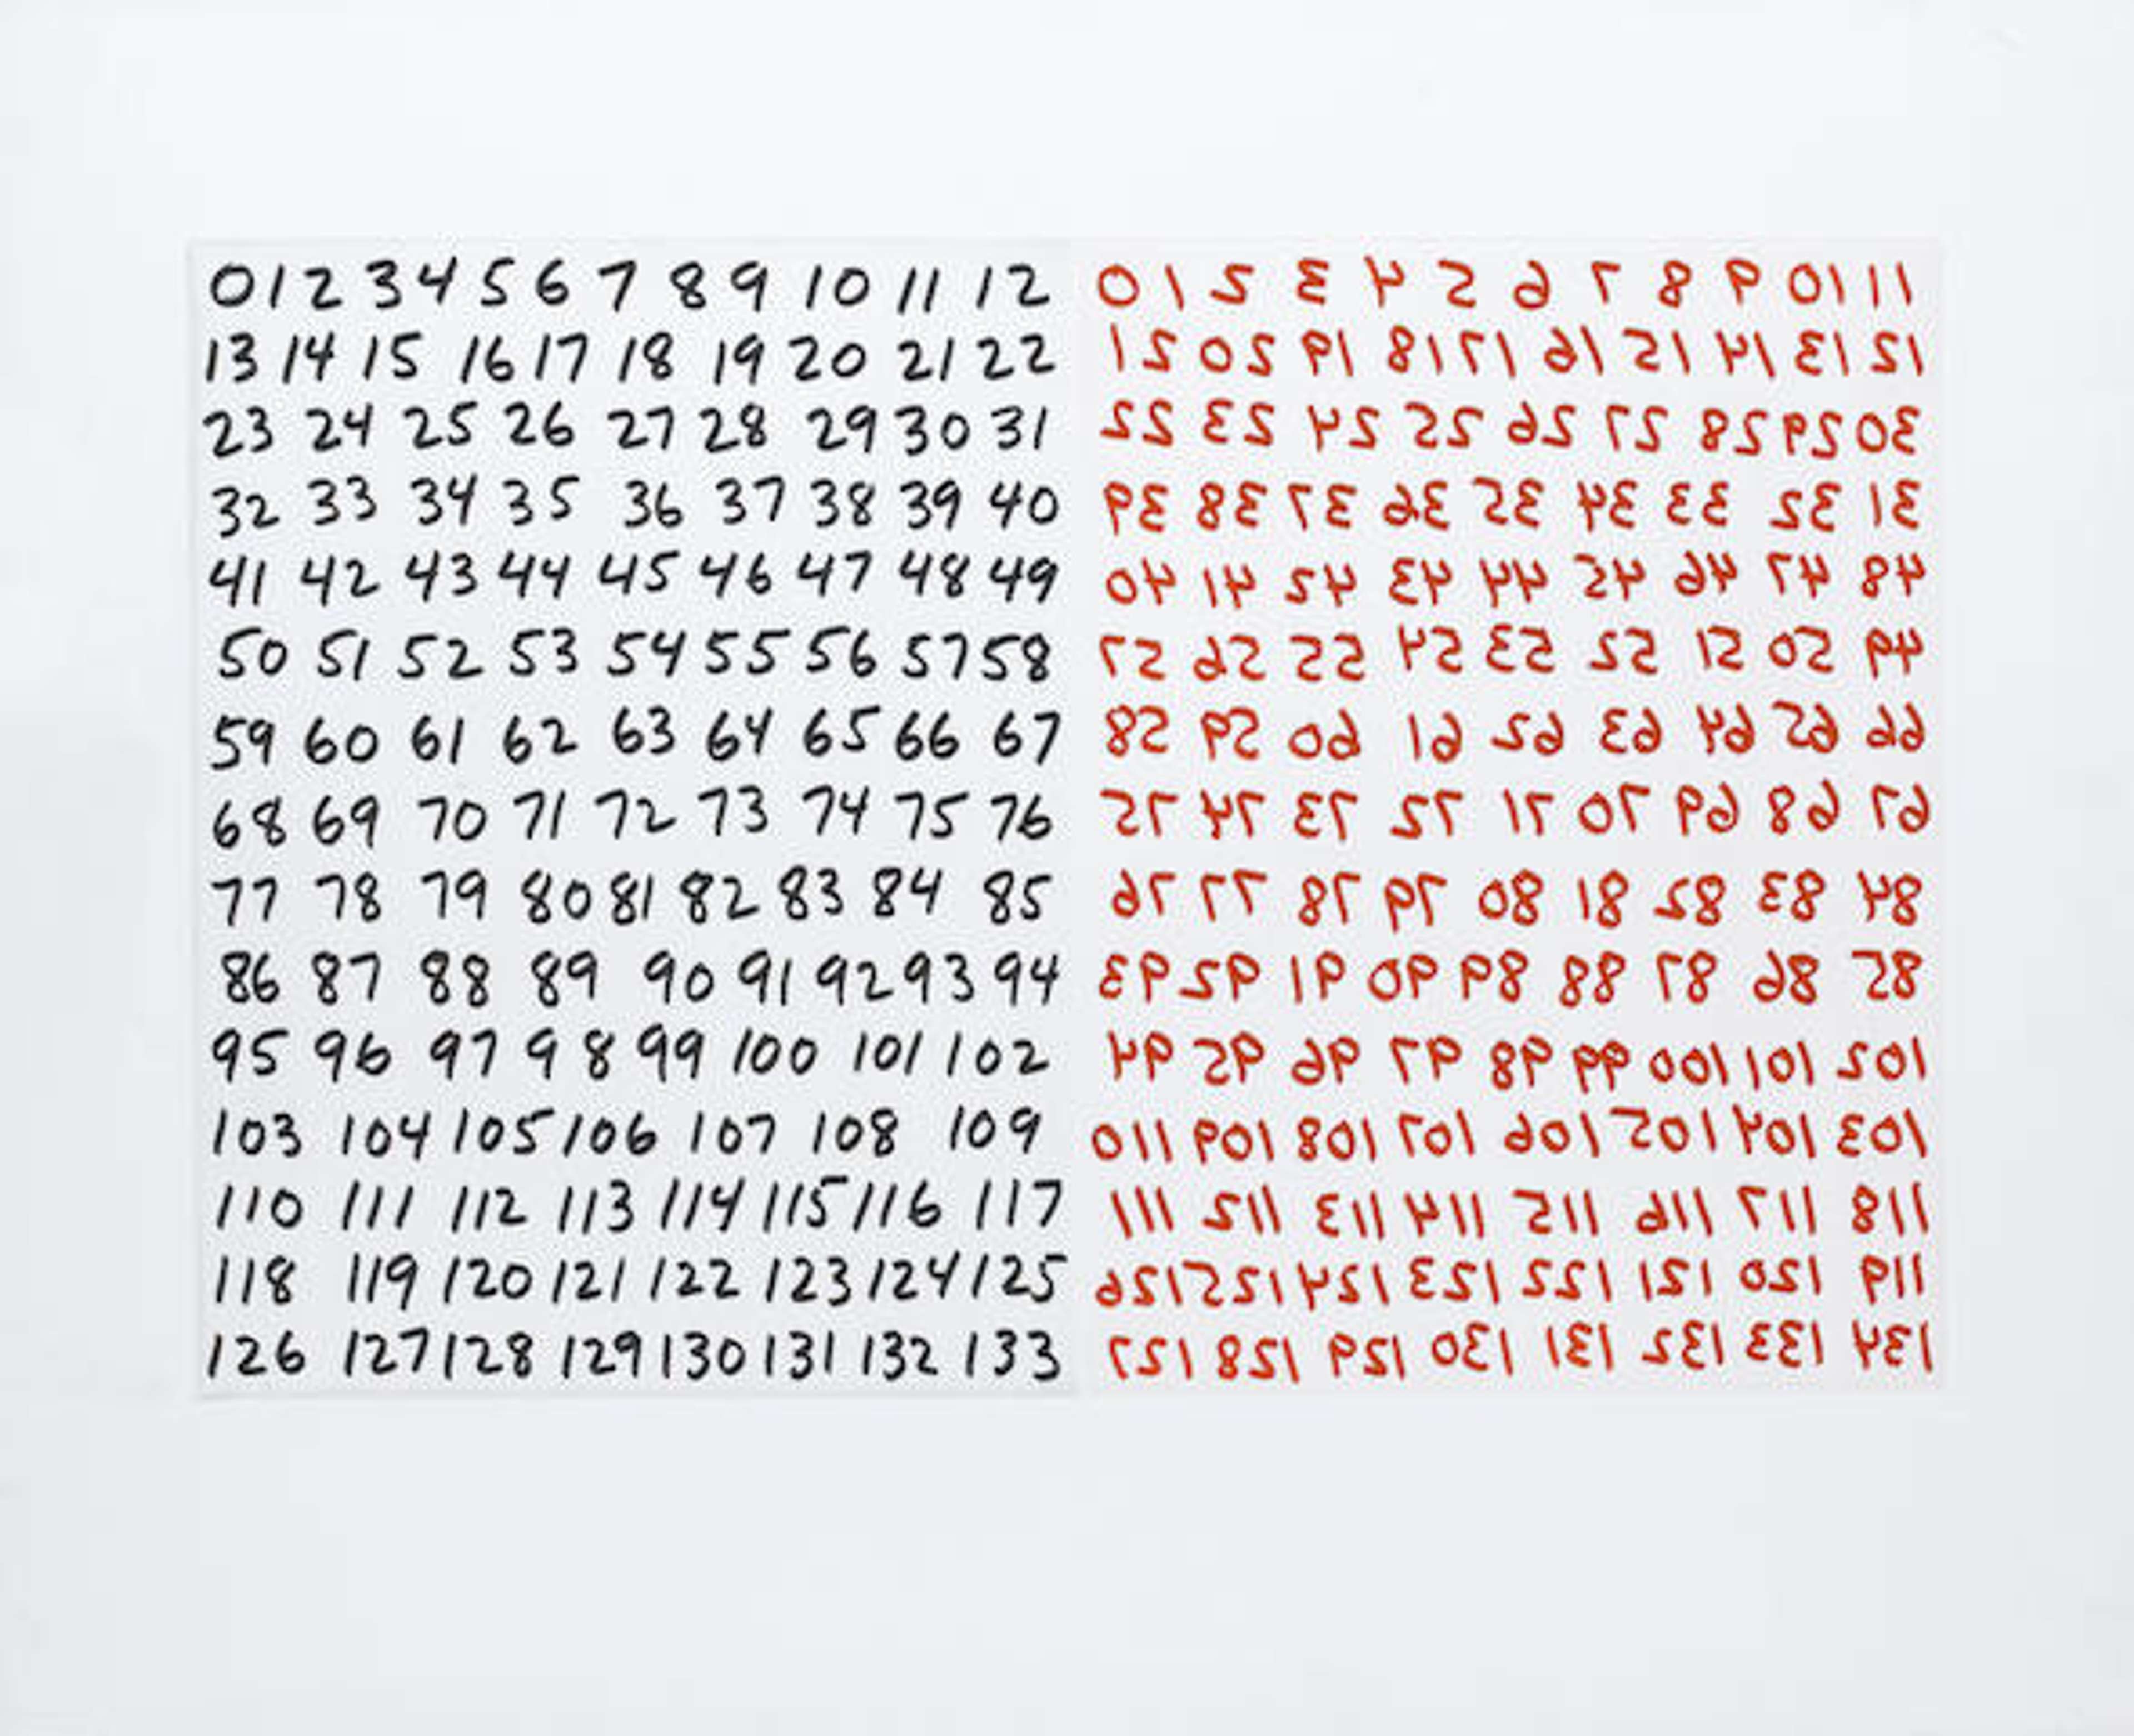 0 1 2 3 4 5 6 7 8 9 10 11 12
13 14 15 16 17 18 19 20 21 22
23 24 25 26 27 28 29 30 31
32 33 34 35 36 37 38 39 40
41 42 43 44 45 46 47 48 49
50 51 52 53 54 55 56 57 58
59 60 61 62 63 64 65 66 67
68 69 70 71 72 73 74 75 76
77 78 79 80 81 82 83 84 85
86 87 88 89 90 91 92 93 94
95 96 97 98 99 100 101 102
103 104 105 106 107 108 109
110 111 112 113 114 115 116 117
118 119 120 121 122 123 124 125
126 127 128 129 130 131 132 133
0 1 2 3 4 5 6 7 8 9 10 11
21 20 19 18 17 16 15 14 13 12
22 23 24 25 26 27 28 29 30
39 38 37 36 35 34 33 32 31
40 41 42 43 44 45 46 47 48
57 56 55 54 53 52 51 50 49
58 59 60 61 62 63 64 65 66
75 74 73 72 71 70 69 68 67
76 77 78 79 80 81 82 83 84
93 92 91 90 89 88 87 86 85
94 95 96 97 98 99 100 101 102
110 109 108 107 106 105 104 103
111 112 113 114 115 116 117 118
126 125 124 123 122 121 120 119
127 128 129 130 131 132 133 134